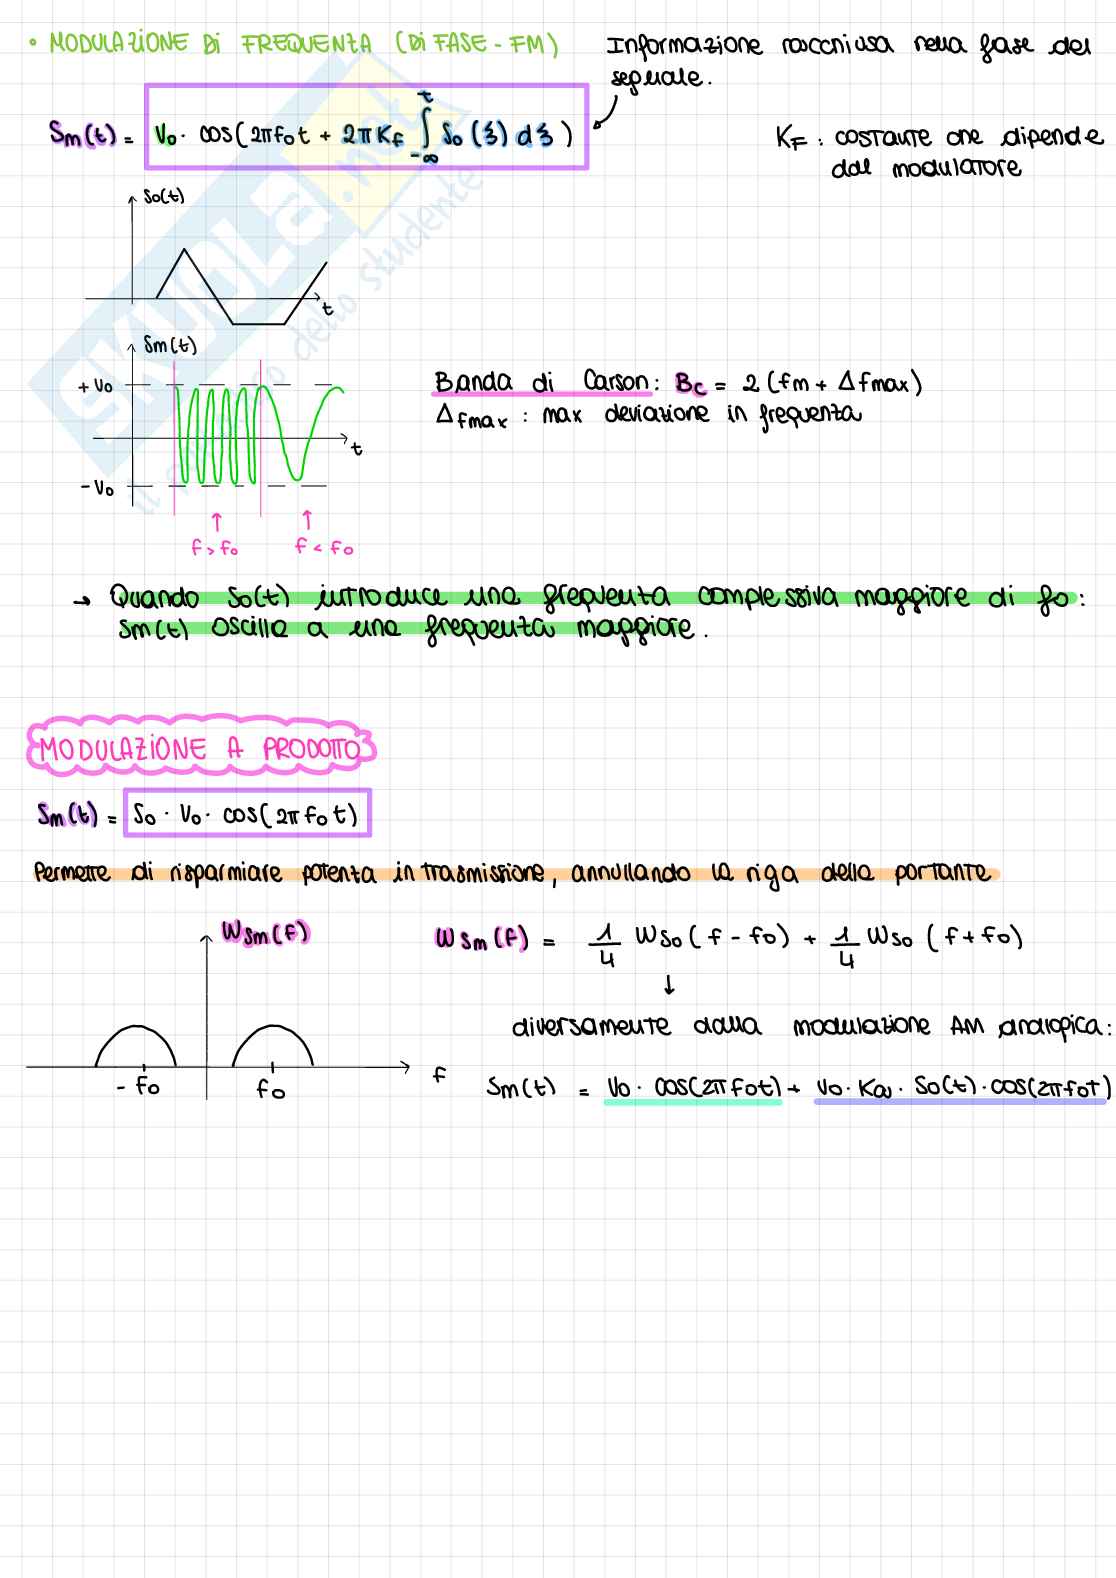 • MODULAZIONE DI FREQUENZA (DI FASE - FM)
Informazione racchiusa nella fase del
segnale.
Sm(t) = V₀ · cos(2πf₀t + 2πK_f ∫_{-∞}^{t} S₀(ξ) dξ)
K_F : costante che dipende
dal modulatore
S₀(t)
t
Sm(t)
+ V₀
t
- V₀
f > f₀
f < f₀
Banda di Carson: B_c = 2(fm + Δfmax)
Δfmax : max deviazione in frequenza
→ Quando S₀(t) introduce una frequenza complessiva maggiore di f₀:
Sm(t) oscilla a una frequenza maggiore.
MODULAZIONE A PRODOTTO
Sm(t) = S₀ · V₀ · cos(2πf₀t)
Permette di risparmiare potenza in trasmissione, annullando la riga della portante
W_Sm(f)
- f₀
f₀
f
W_Sm(f) = 1/4 W_S₀(f - f₀) + 1/4 W_S₀(f + f₀)
↓
diversamente dalla modulazione AM analogica:
Sm(t) = V₀ · cos(2πf₀t) + V₀ · Ka · S₀(t) · cos(2πf₀t)
SKUOLA.net
dello studente